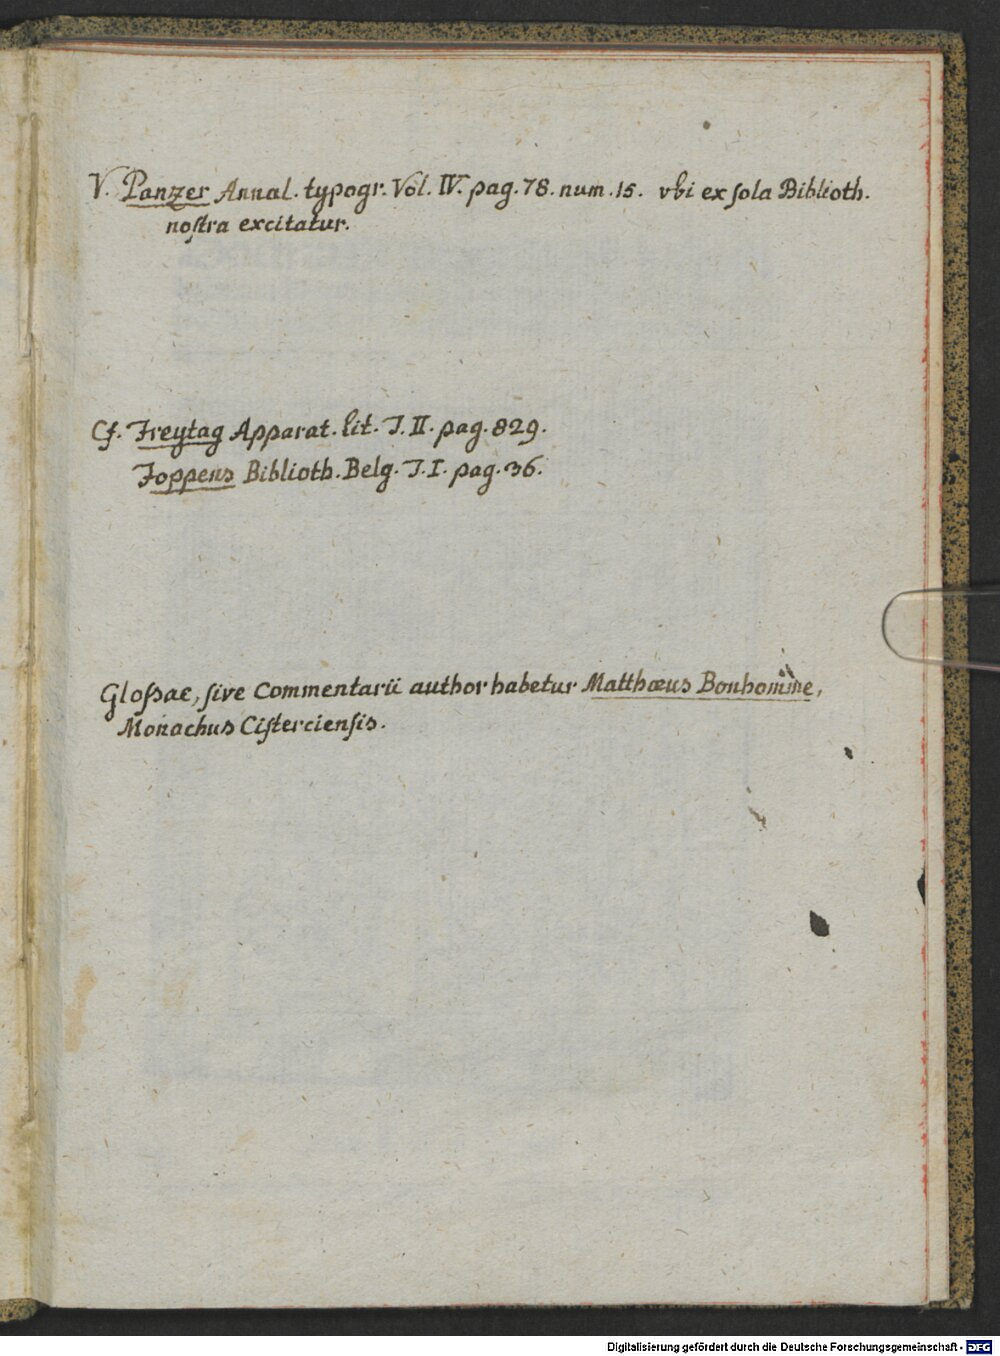 V. Panzer Annal. typogr. Vol. IV. pag. 78. num. 15. vbi ex ſola Biblioth.
noſtra excitatur.
Cf. Freytag Apparat. lit. T. II. pag. 829.
Foppens Biblioth. Belg. T. I. pag. 36.
Gloſsae, ſive Commentarii author habetur Matthæus Bonhomme,
Monachus Ciſtercienſis.
Digitalisierung gefördert durch die Deutsche Forschungsgemeinschaft - DFG